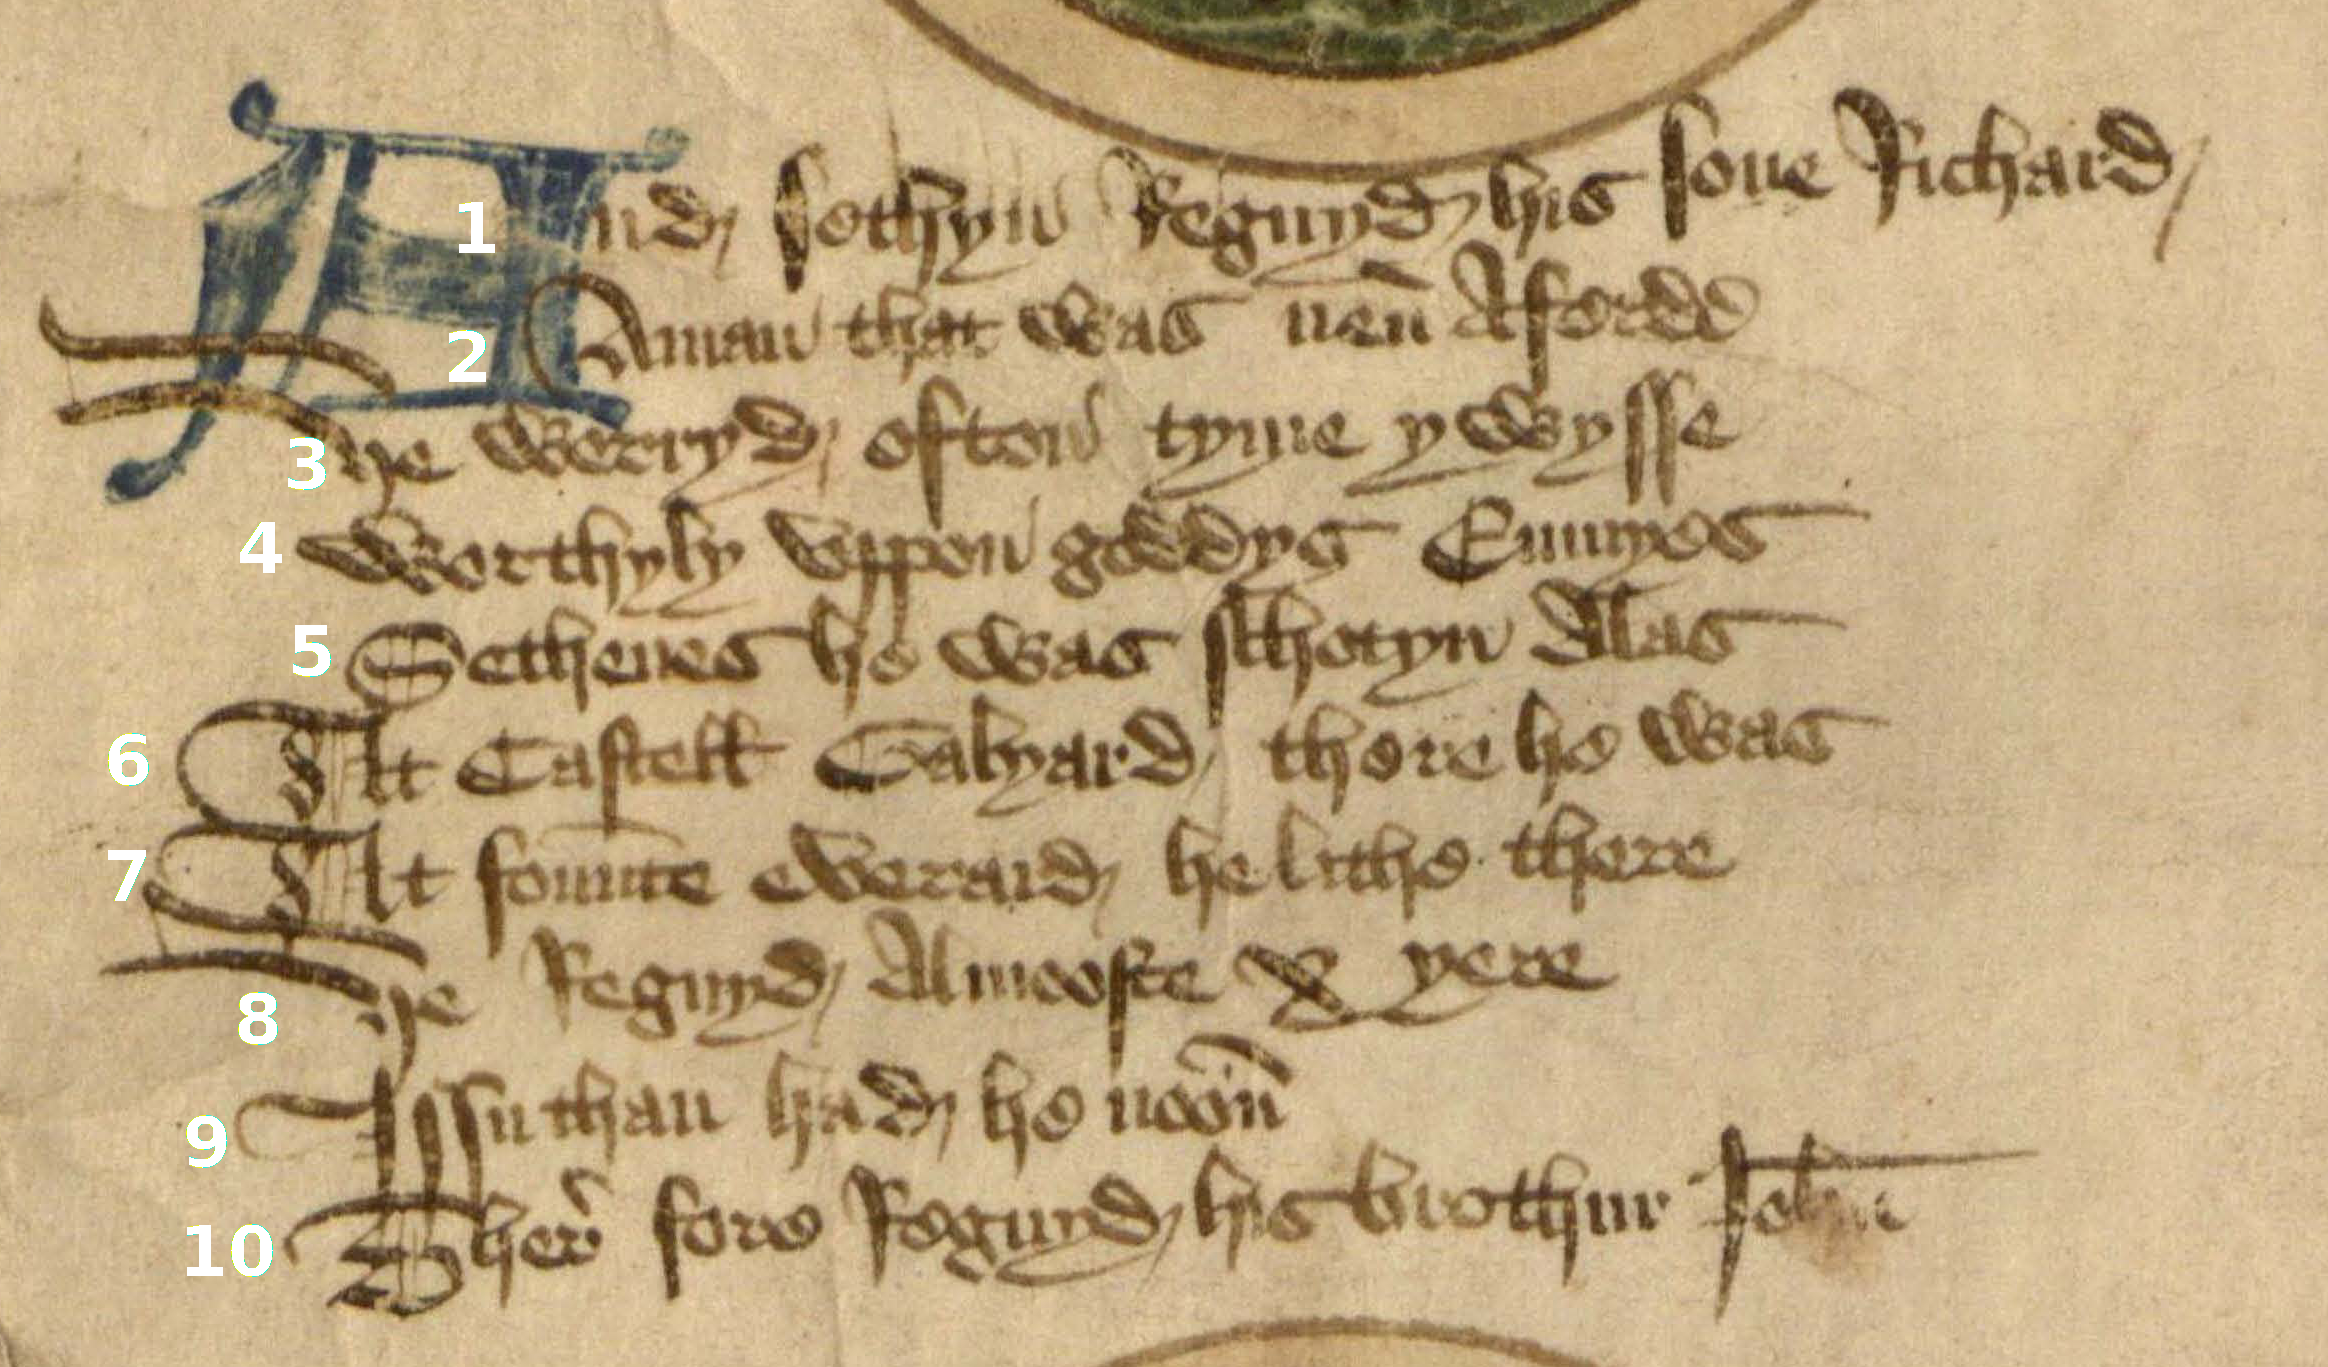 1 And sothyn Regnyd his sone Richard
2 A man that was neu̅ Aferdd
3 he werryd often tyme y wysse
4 Worthyly vppon goddys Enmyes
5 Sethenes he was schotyn Allas
6 Att Castell Galyard there he was
7 Att founte everard he lithe there
8 he Regnyd Almooste x yere
9 Issu than had he noon̅
10 Ther fore Regnyd his brothur John